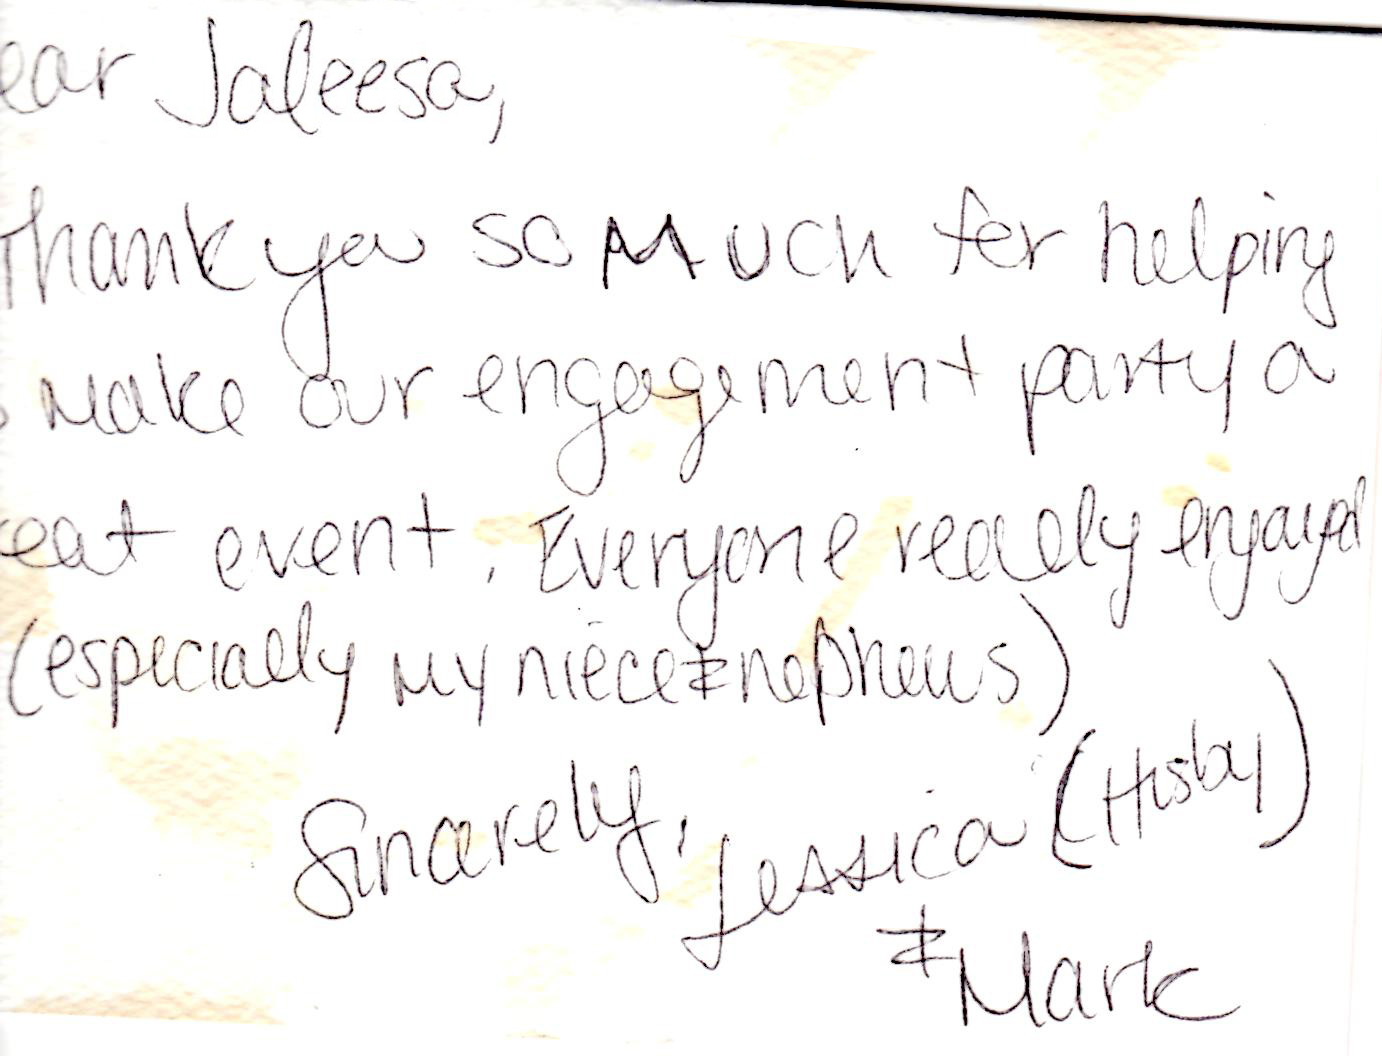 ear Jaleesa,
Thank you so Much for helping
o make our engagement party a
reat event. Everyone really enjoyed
(especially my niece & nephews)
Sincerely,
Jessica (Hisby)
& Mark